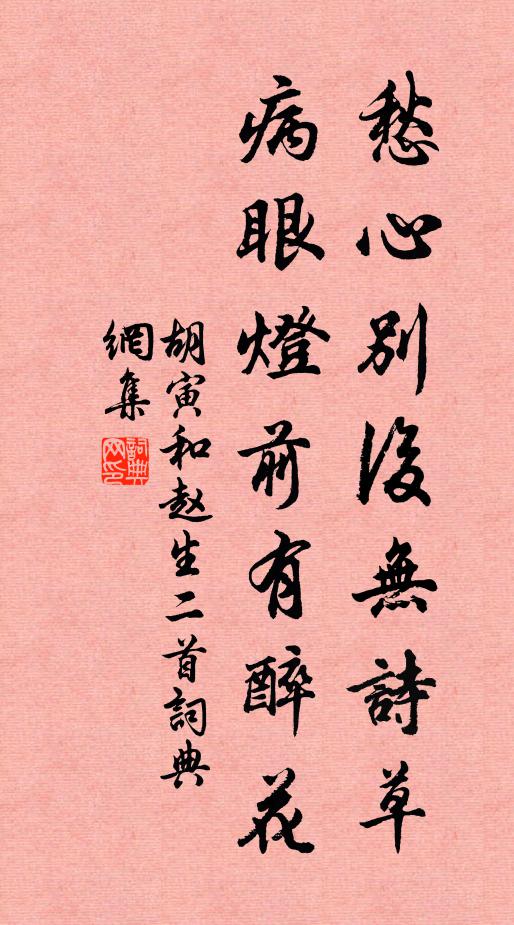 愁心別後無詩草
病眼燈前有醉花
胡寅和赵生二首詞典
網集
詞典
网印